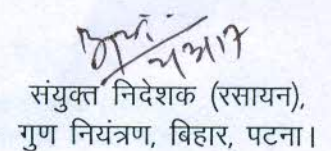 संयुक्त निदेशक (रसायन),
गुण नियंत्रण, बिहार, पटना।